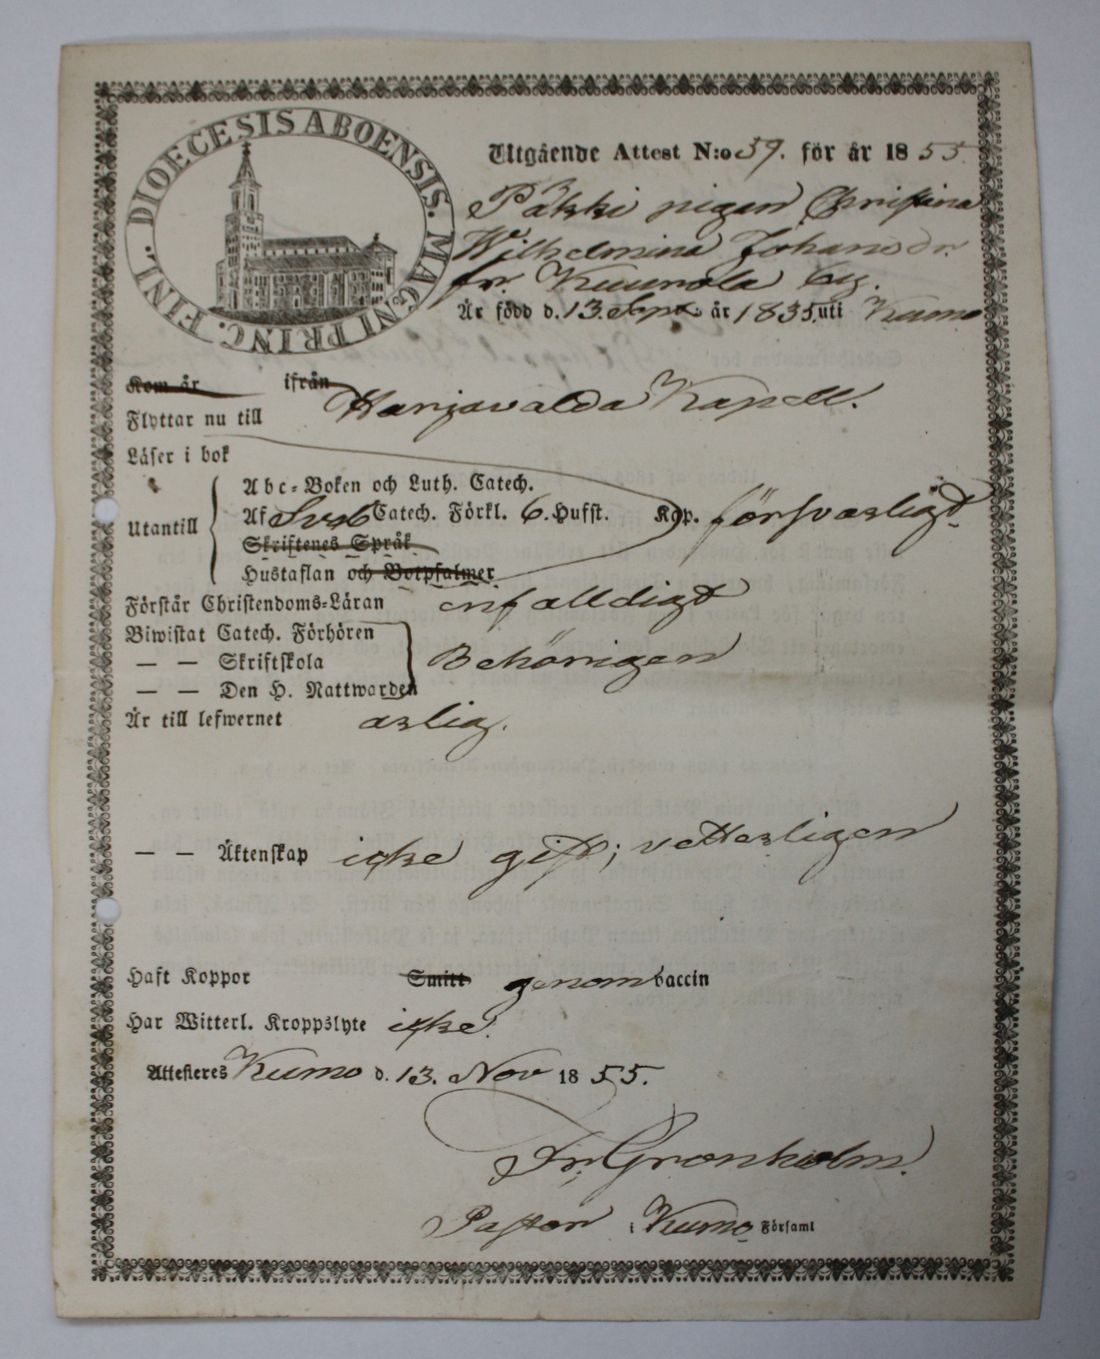 DIOECESIS ABOENSIS. MAGNI PRINC. FINL.
Utgående Attest N:o 39. för år 1855
pigan Christina
Wilhelmina Johansdr.
fr. Kuurola by.
Är född d. 13. Sept. år 1835. uti Kumo
Kom år ifrån
Flyttar nu till Harjavalda Kapell.
Läser i bok
Utantill
Abc-Boken och Luth. Catech.
Af Sveb Catech. Förkl. 6. Hufst. Kap. försvarligt
Skriftenes Språk
Hustaflan och Botpsalmer
Förstår Christendoms-Läran enfalldigt
Biwistat Catech. Förhören
— — Skriftskola Behörigen
— — Den H. Nattwarden
Är till lefwernet ärlig.
— — Äktenskap icke gift; vetterligen
Haft Koppor Smitt genom vaccin
Har Witterl. Kroppslyte icke.
Attesteres Kumo d. 13. Nov 1855.
Fr. Grönholm.
Pastor i Kumo Församl